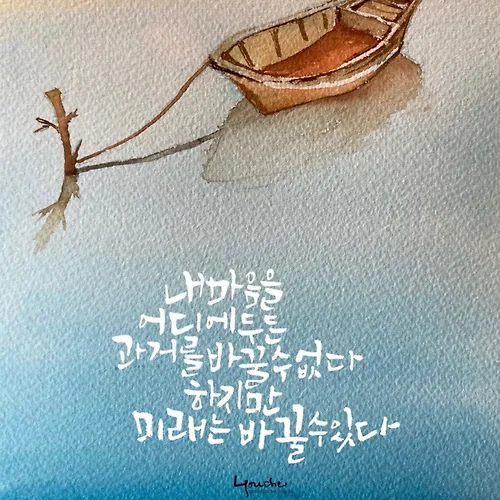 내마음을
어디에두든
과거를바꿀수없다
하지만
미래는 바꿀수있다
Youche